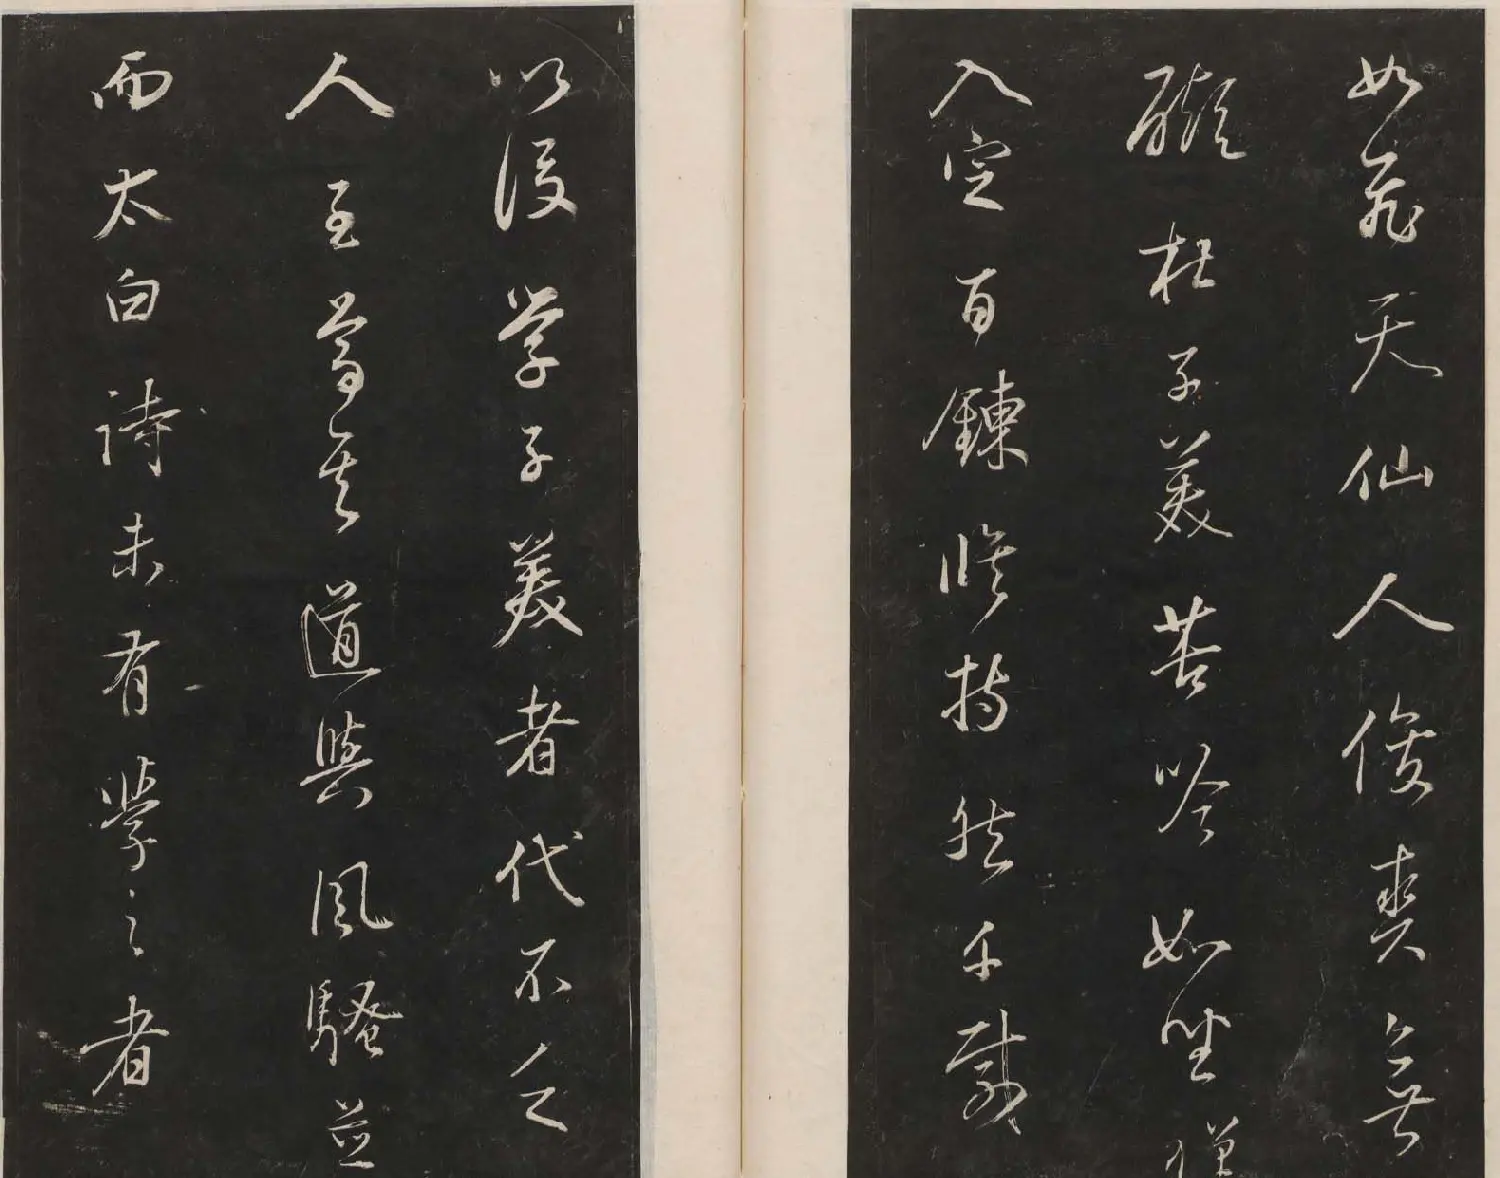 如飛天仙人俊爽無
礙杜子美苦吟如坐禪
入定百鍊脩持然千載
以後學子美者代不乏
人至尊其道與風騷並
而太白詩未有學之者